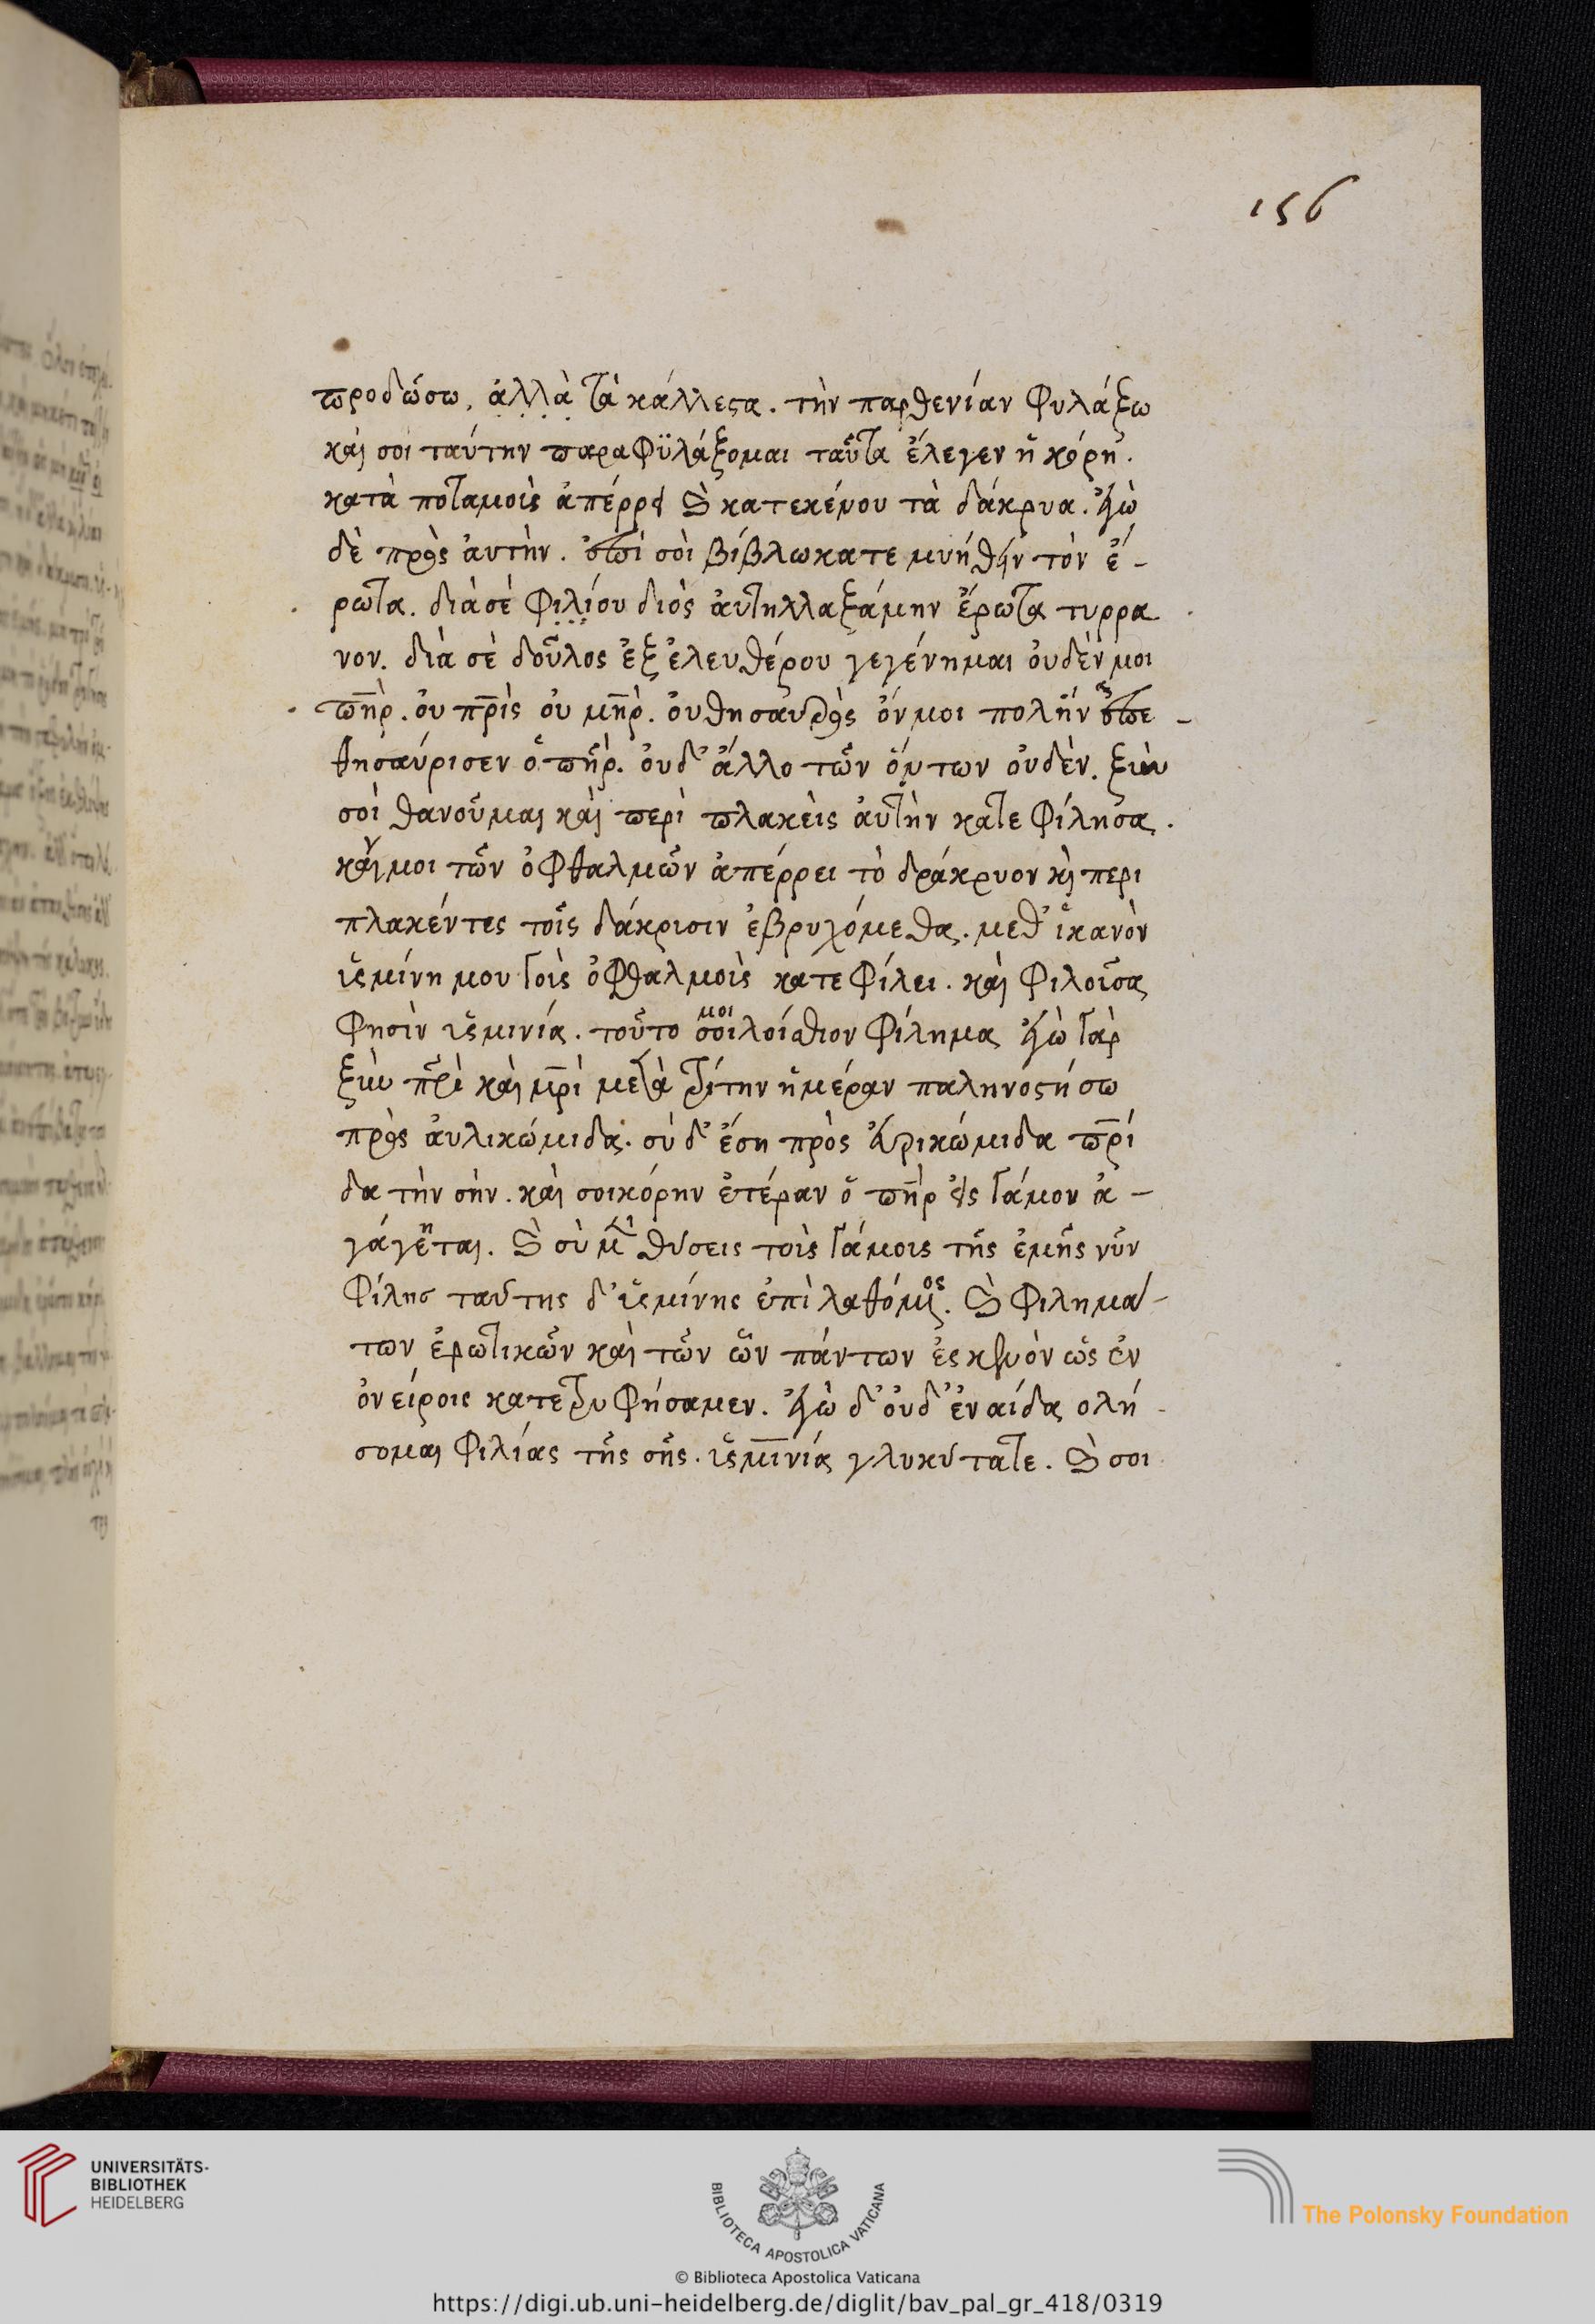 156
προδώσω, ἀλλὰ τὰ κάλλεστα. τὴν παρθενίαν φυλάξω
καὶ σοι ταύτην παραφϋλάξομαι ταῦτα ἔλεγεν ἡ κόρη.
κατὰ ποταμοὺς ἀπέρρει καὶ κατεκένου τὰ δάκρυα. ἐγὼ
δὲ πρὸς ἀυτὴν. ἐπὶ σοὶ βίβλω κατεμυήθην τὸν ἔ-
ρωτα. διὰ σὲ φιλίου διὸς ἀντηλλαξάμην ἔρωτα τυρρα
νον. διὰ σὲ δοῦλος ἐξ ἐλευθέρου γεγένημαι ὀυδὲν μοι
πηρ. ὀυ πρὶς ὀυ μηρ. ὀυ θησαυρὸς ὄν μοι πολὴν
θησαύρισεν ὁ πηρ. ὀυδ' ἄλλο τῶν ὄντων ὀυδὲν. ξὺν
σοὶ θανοῦμαι καὶ περὶ πλακεὶς ἀυτὴν κατεφίλησα.
κάν μοι τῶν ὀφθαλμῶν ἀπέρρει τὸ δράκρυον καὶ περι
πλακέντες τοῖς δάκρισιν ἐβρυχόμεθα. μεθ' ἱκανὸν
ὑσμίνη μου τοὺς ὀφθαλμοὺς κάτεφίλει. καὶ φιλοῦσα
φησὶν ὑσμινία. τοῦτο σοι μοι λοίσθιον φίλημα ἐγὼ γὰρ
ξὺν πρὶ καὶ μρὶ μετὰ τρίτην ἡμέραν παληνοστήσω
πρὸς ἀυλικώμιδα. σὺ δ' ἔση πρὸς ἐυρικώμιδα πρί
δα τὴν σὴν. καὶ σοι κόρην ἑτέραν ὁ πηρ εἰς γάμον ἀ-
γάγηται. καὶ σὺ μὲν θύσεις τοὺς γάμοις τῆς ἐμῆς νῦν
φίλης ταύτης δ' ὑσμίνης ἐπὶ λαθόμενος. καὶ φιλημά-
των ἐρωτικῶν καὶ τῶν ὧν πάντων ἐς κενὸν ὡς ἐν
ὀνείροις κατετρυφήσαμεν. ἐγὼ δ' ὀυδ' ἐν αίδα ολή-
σομαι φιλίας τῆς σῆς. ὑσμινία γλυκύτατε. καὶ σοι
UNIVERSITÄTS-
BIBLIOTHEK
HEIDELBERG
BIBLIOTECA APOSTOLICA VATICANA
© Biblioteca Apostolica Vaticana
The Polonsky Foundation
https://digi.ub.uni-heidelberg.de/diglit/bav_pal_gr_418/0319